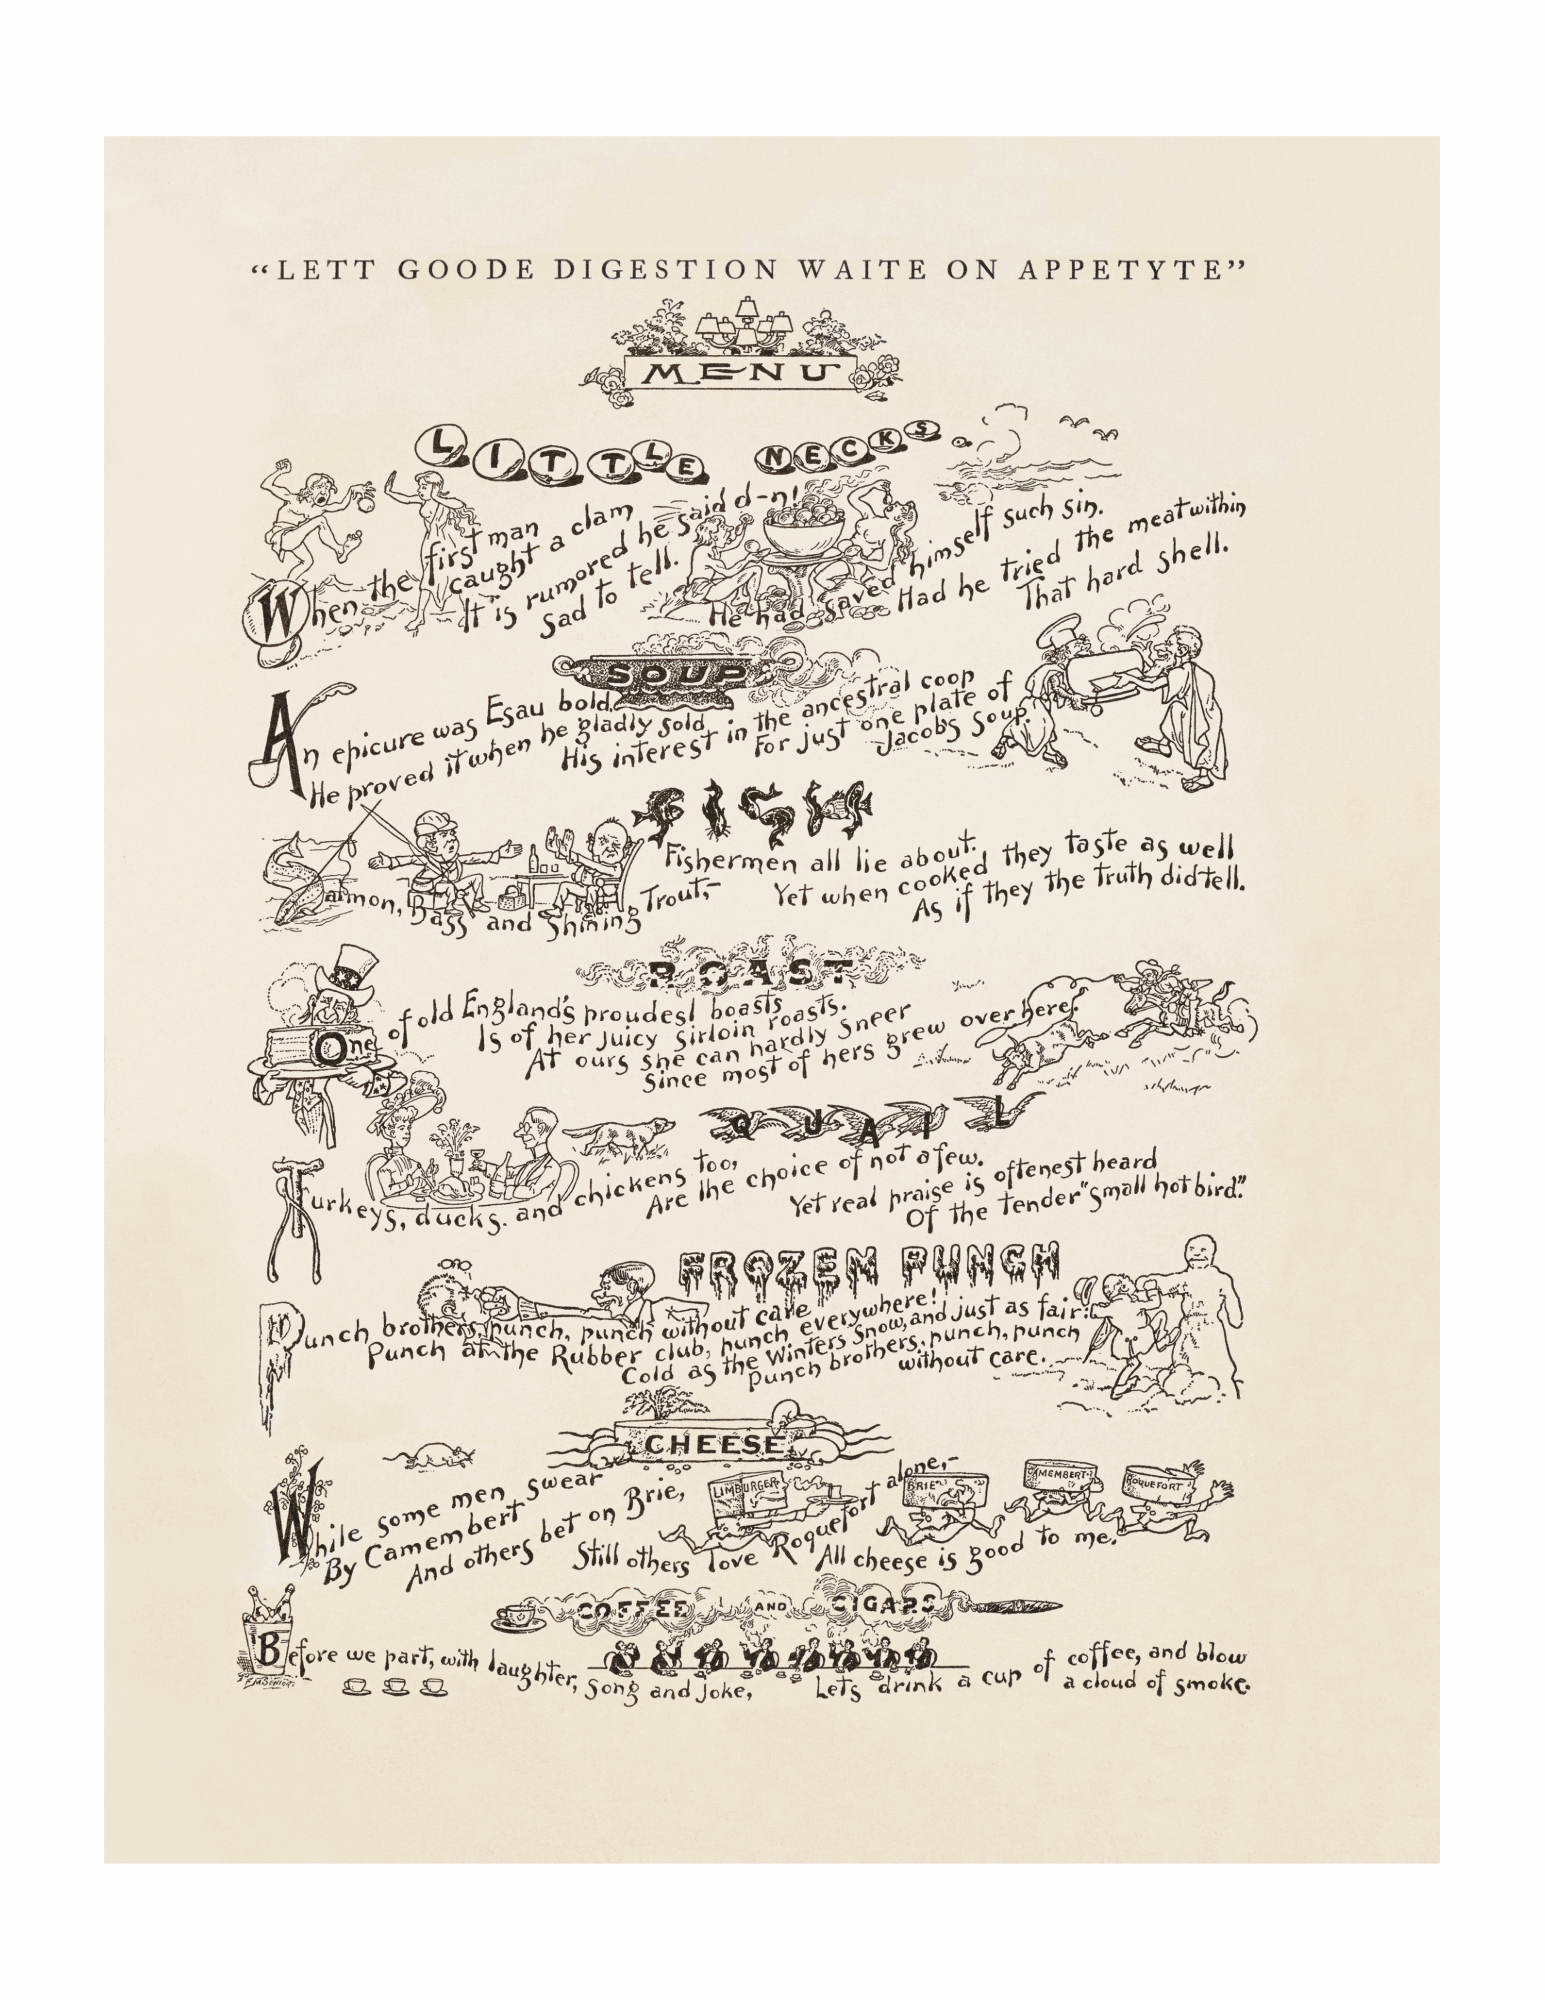 “LETT GOODE DIGESTION WAITE ON APPETYTE”
MENU
LITTLE NECKS.
When the first man
caught a clam
It is rumored he said d-n!
Sad to tell.
He had saved himself such sin.
Had he tried the meat within
That hard shell.
SOUP
An epicure was Esau bold,
He proved it when he gladly sold
His interest in the ancestral coop
For just one plate of
Jacob's Soup.
FISH
Salmon, Bass and Shining Trout,-
Fishermen all lie about.
Yet when cooked they taste as well
As if they the truth did tell.
ROAST
One of old England's proudest boasts
Is of her juicy sirloin roasts.
At ours she can hardly sneer
Since most of hers grew over here.
QUAIL
Turkeys, ducks. and chickens too,
Are the choice of not a few.
Yet real praise is oftenest heard
Of the tender "small hot bird."
FROZEN PUNCH
Punch brothers, punch, punch without care
Punch at the Rubber club, punch everywhere!
Cold as the Winters Snow, and just as fair:
Punch brothers, punch, punch
without care.
CHEESE
While some men swear
By Camembert
And others bet on Brie,
Still others love Roquefort alone,-
All cheese is good to me.
LIMBURGER
BRIE
MEMBERT
ROQUEFORT
COFFEE AND CIGARS
Before we part, with laughter, song and joke,
Let's drink a cup of coffee, and blow
a cloud of smoke.